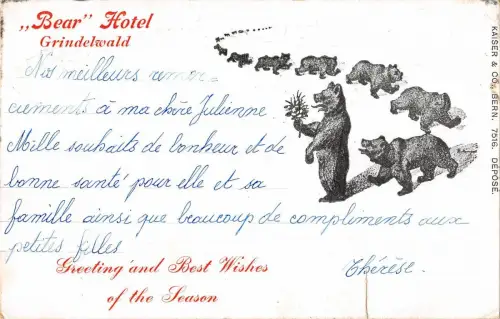 „Bear" Hotel
Grindelwald
Nos meilleurs remer-
ciements à ma chère Julienne
Mille souhaits de bonheur et de
bonne santé pour elle et sa
famille ainsi que beaucoup de compliments aux
petites filles
Thérèse.
Greeting and Best Wishes
of the Season
KAISER & CO. BERN. 7516. DÉPOSÉ.